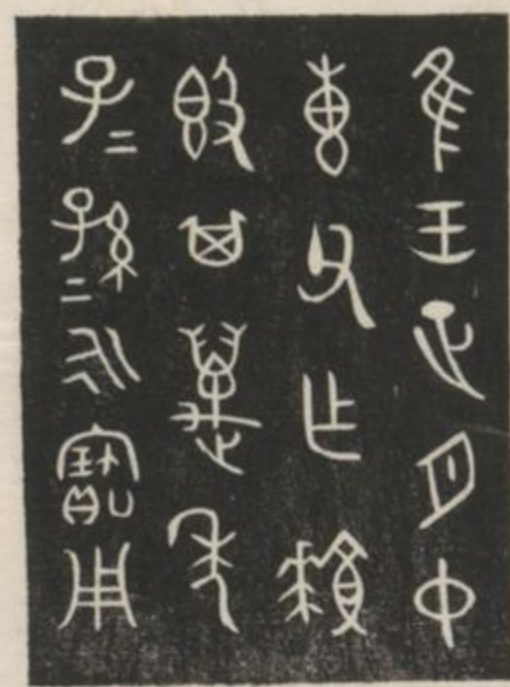 隹王正月中
叀父乍
𣪘其萬年
子二孫二永寶用